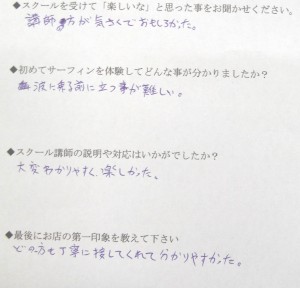 ◆スクールを受けて「楽しいな」と思った事をお聞かせください。
講師の方が気さくでおもしろかった。
◆初めてサーフィンを体験してどんな事が分かりましたか？
波に乗る前に立つ事が難しい。
◆スクール講師の説明や対応はいかがでしたか？
大変わかりやすく、楽しかった。
◆最後にお店の第一印象を教えて下さい
どの方も丁寧に接してくれて分かりやすかった。